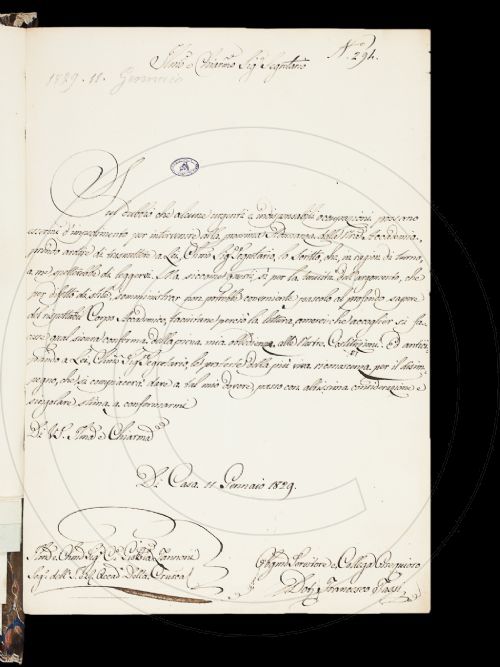 N.° 294.
Ill.mo e Chiar.mo Sig.r Segretario
1829. 11. Gennaio
Sul dubbio che alcune urgenti e indispensabili occupazioni possano
essermi d'impedimento per intervenire alla prossima Adunanza della
prendo ardire di trasmettere a Lei, Ch.mo Sig.r Segretario, lo Scritto, che, in ragion di turno,
a me spetterebbe di leggere. Ma siccome questi, sì per la dell'argomento, che
per difetto di stile, somministrar non potrebbe conveniente pascolo al profondo sapere
del rispettabile Corpo Accademico, perciò la lettura, amerei che accoglier si fa-
cesse qual sicura conferma della piena mia obbedienza alle Nostre Costituzioni. Ed antici-
pando a Lei, Sig.r Segretario, le proteste della più viva riconoscenza per il disim-
pegno, che si compiacerà dare a tal mio dovere, passo con altissima considerazione e
singolare stima a confermarmi
Di V.S. Ill.ma e Chiar.ma
Di Casa 11. Gennaio 1829.
Ill.mo e Ch.mo Sig.r Zannoni
Seg.rio dell' Accad.a della Crusca
Servitore e Collega Ossequioso
Dott. Francesco Tassi